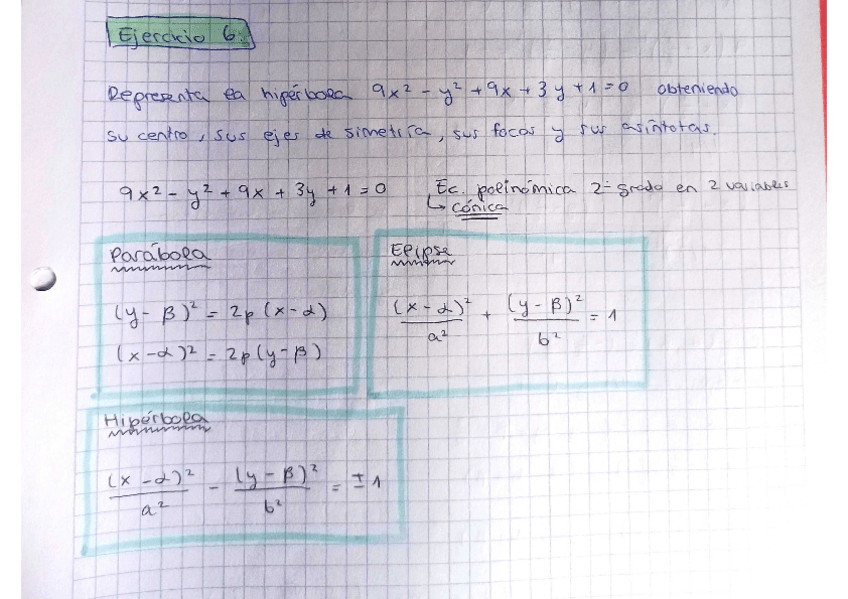 Ejercicio 6:
Representa la hipérbola 9x² - y² + 9x + 3y + 1 = 0 obteniendo
su centro, sus ejes de simetría, sus focos y sus asíntotas.
9x² - y² + 9x + 3y + 1 = 0 Ec. polinómica 2º grado en 2 variables
↳ cónica
Parábola
(y - β)² = 2p (x - α)
(x - α)² = 2p (y - β)
Elipse
(x - α)²/a² + (y - β)²/b² = 1
Hipérbola
(x - α)²/a² - (y - β)²/b² = ± 1